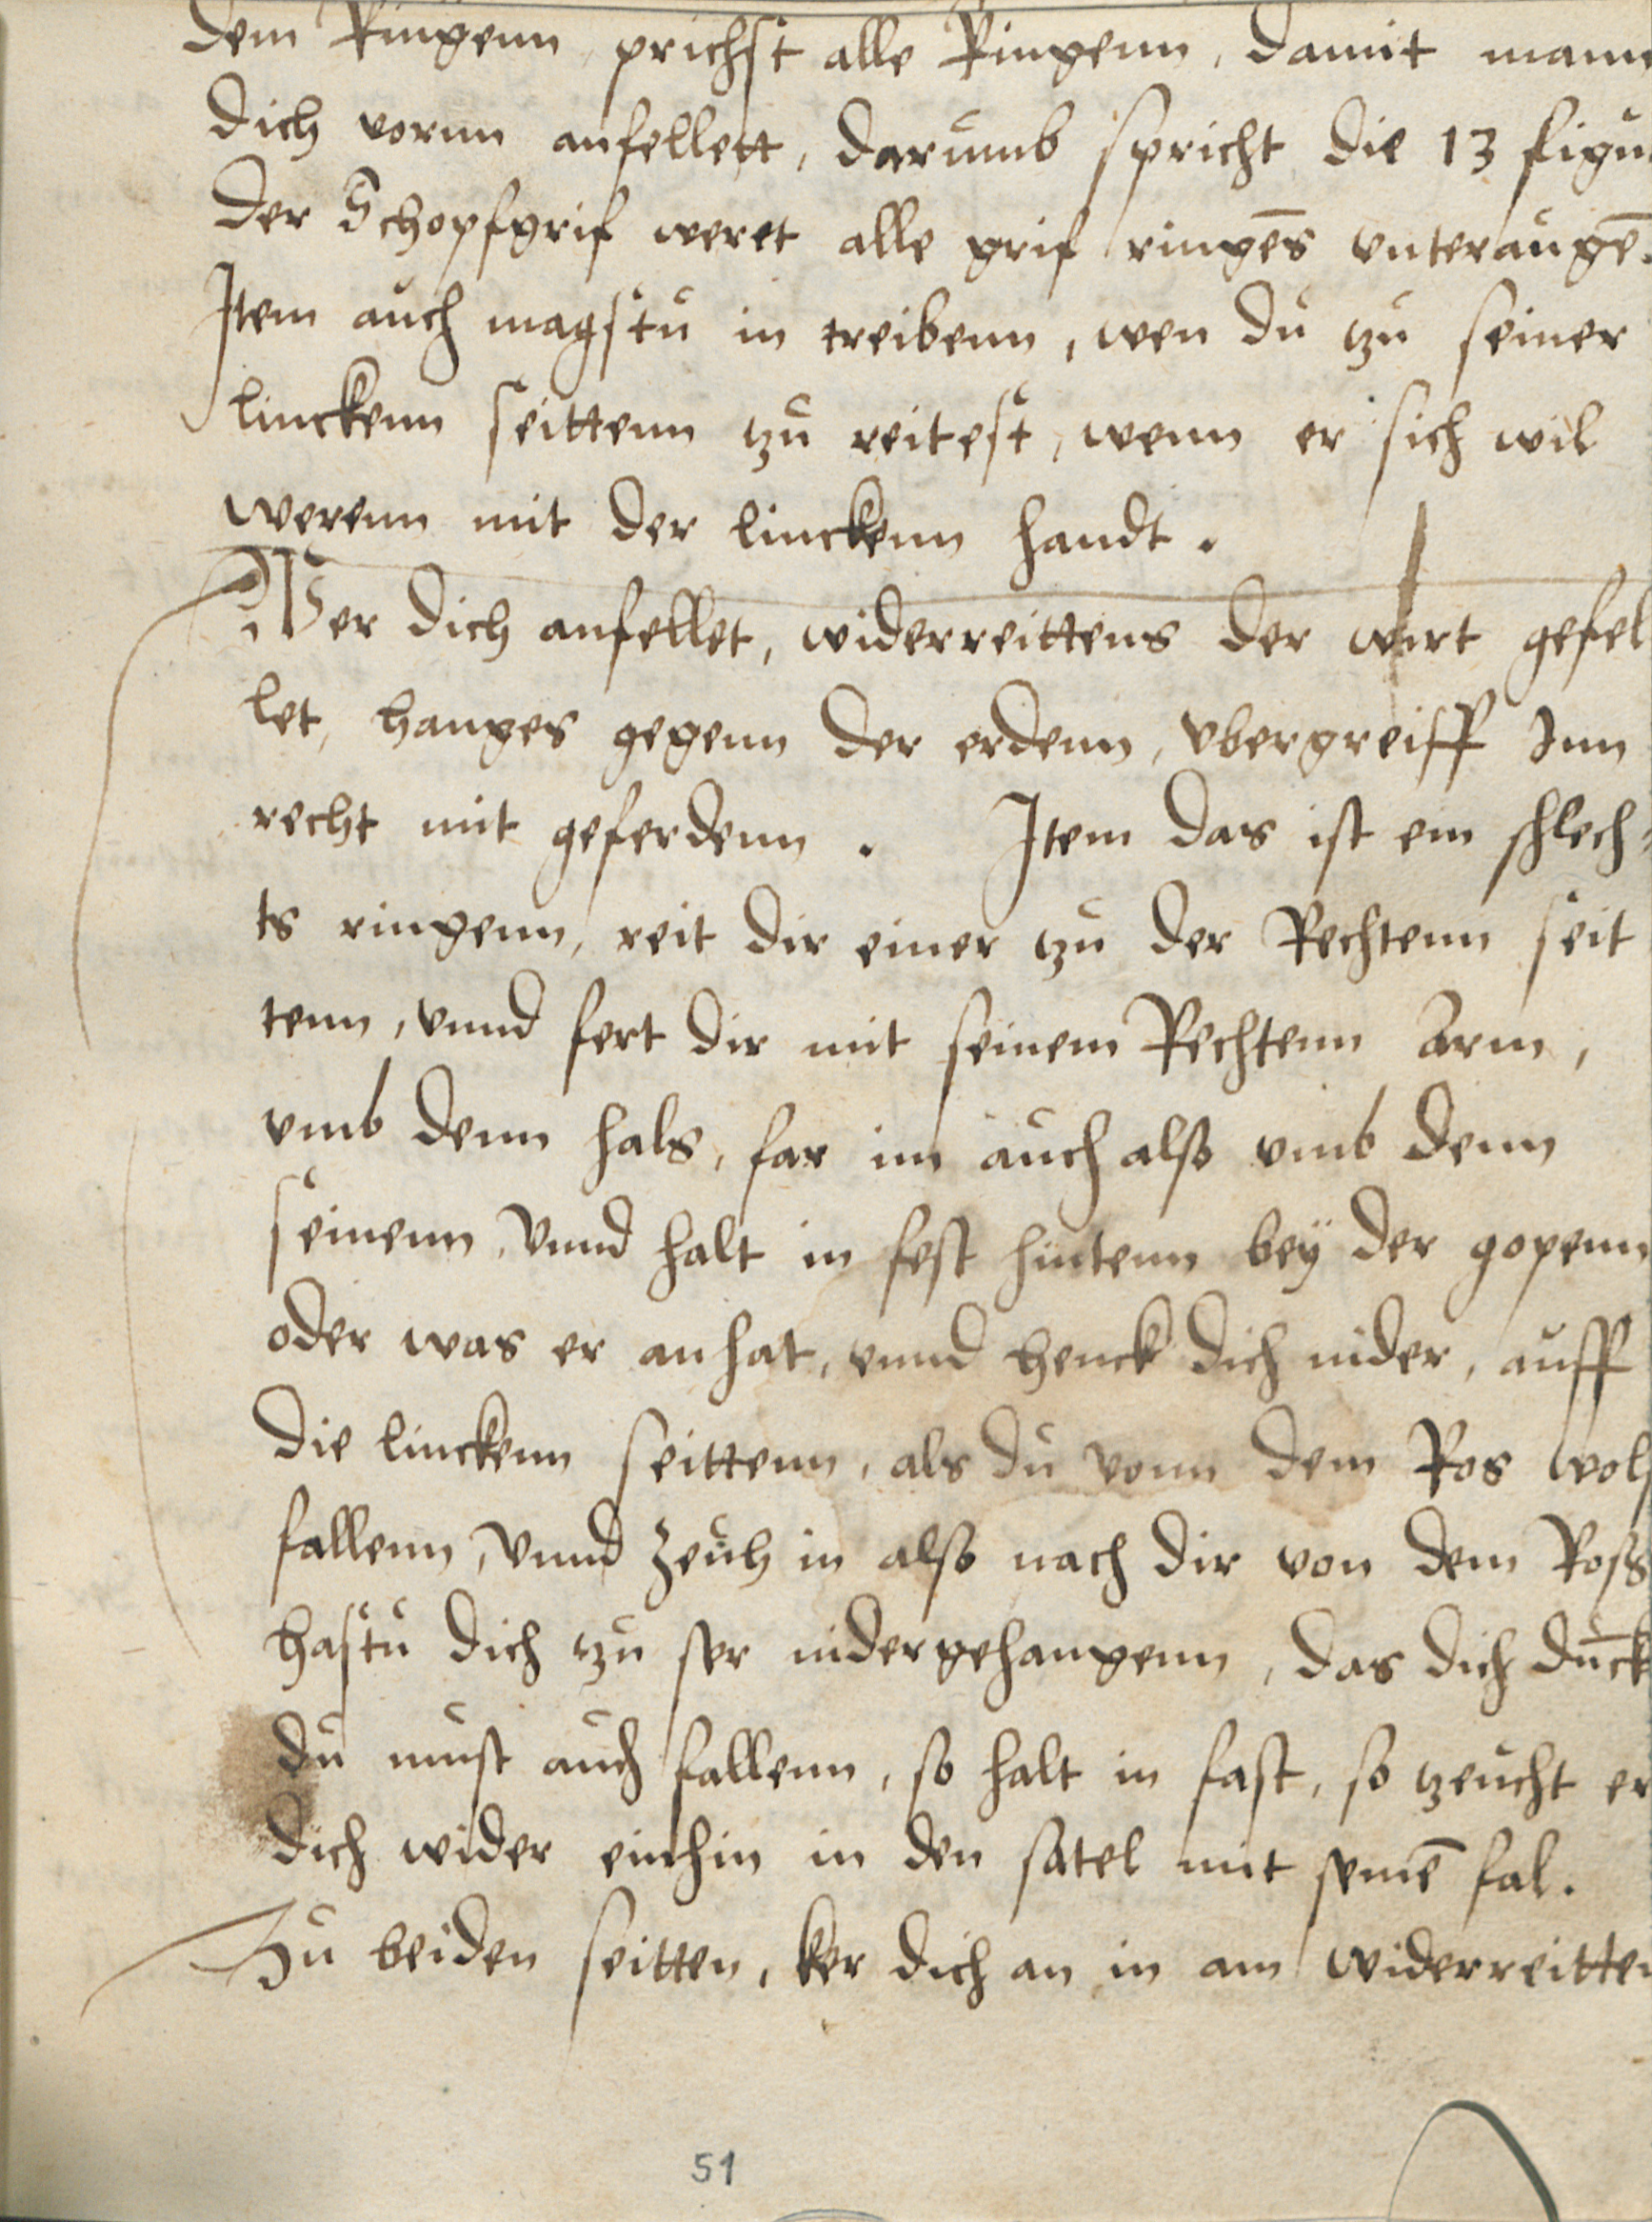 dem Ringenn, prichst alle Ringenn, damit mann
dich vornn anfellett, darumb spricht die 13 figu
der Schopfgrif weret alle grif ringēs vnteraugē.
Item auch magstu in treibenn, wen du tzu seiner
linckenn seittenn tzu reitest, wenn er sich wil
werenn mit der linckenn handt.
Wer dich anfellet, widerreittens der wirt gefel
let, hanges gegenn der erdenn, vbergreiff Inn
recht mit geferdenn. Item das ist ein schlech-
ts ringenn, reit dir einer tzu der Rechtenn seit
tenn, vnnd fert dir mit seinem Rechtenn Arm,
vmb denn hals, far im auch also vmb denn
seinenn, vnnd halt in fest hintenn bey der gopenn
oder was er anhat, vnnd henck dich nider, auff
die linckenn seittenn, als du vonn dem Ros wols
fallenn, vnnd zeuh in also nach dir von dem Ross
hastu dich tzu ser nidergehangenn, das dich du̅ck
du must auch fallenn, so halt in fast, so tzeucht er
dich wider einhin in den satel mit seinē fal.
Zu beiden seitten, ker dich an in am widerreitten
51